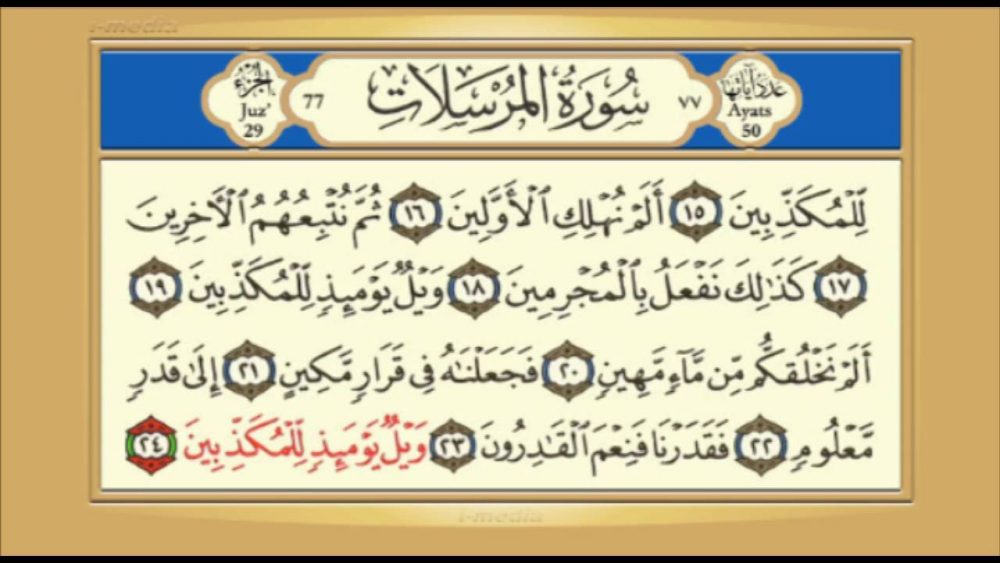 i-media
الجزء
Juz'
29
77
سُورَةُ المُرْسَلَاتِ
٧٧
عَدَدُ آيَاتِهَا
Ayats
50
لِّلْمُكَذِّبِينَ ١٥ أَلَمْ نُهْلِكِ ٱلْأَوَّلِينَ ١٦ ثُمَّ نُتْبِعُهُمُ ٱلْآخِرِينَ
١٧ كَذَٰلِكَ نَفْعَلُ بِٱلْمُجْرِمِينَ ١٨ وَيْلٌ يَوْمَئِذٍ لِّلْمُكَذِّبِينَ ١٩
أَلَمْ نَخْلُقكُّم مِّن مَّآءٍ مَّهِينٍ ٢٠ فَجَعَلْنَٰهُ فِى قَرَارٍ مَّكِينٍ ٢١ إِلَىٰ قَدَرٍ
مَّعْلُومٍ ٢٢ فَقَدَرْنَا فَنِعْمَ ٱلْقَٰدِرُونَ ٢٣ وَيْلٌ يَوْمَئِذٍ لِّلْمُكَذِّبِينَ ٢٤
i-media